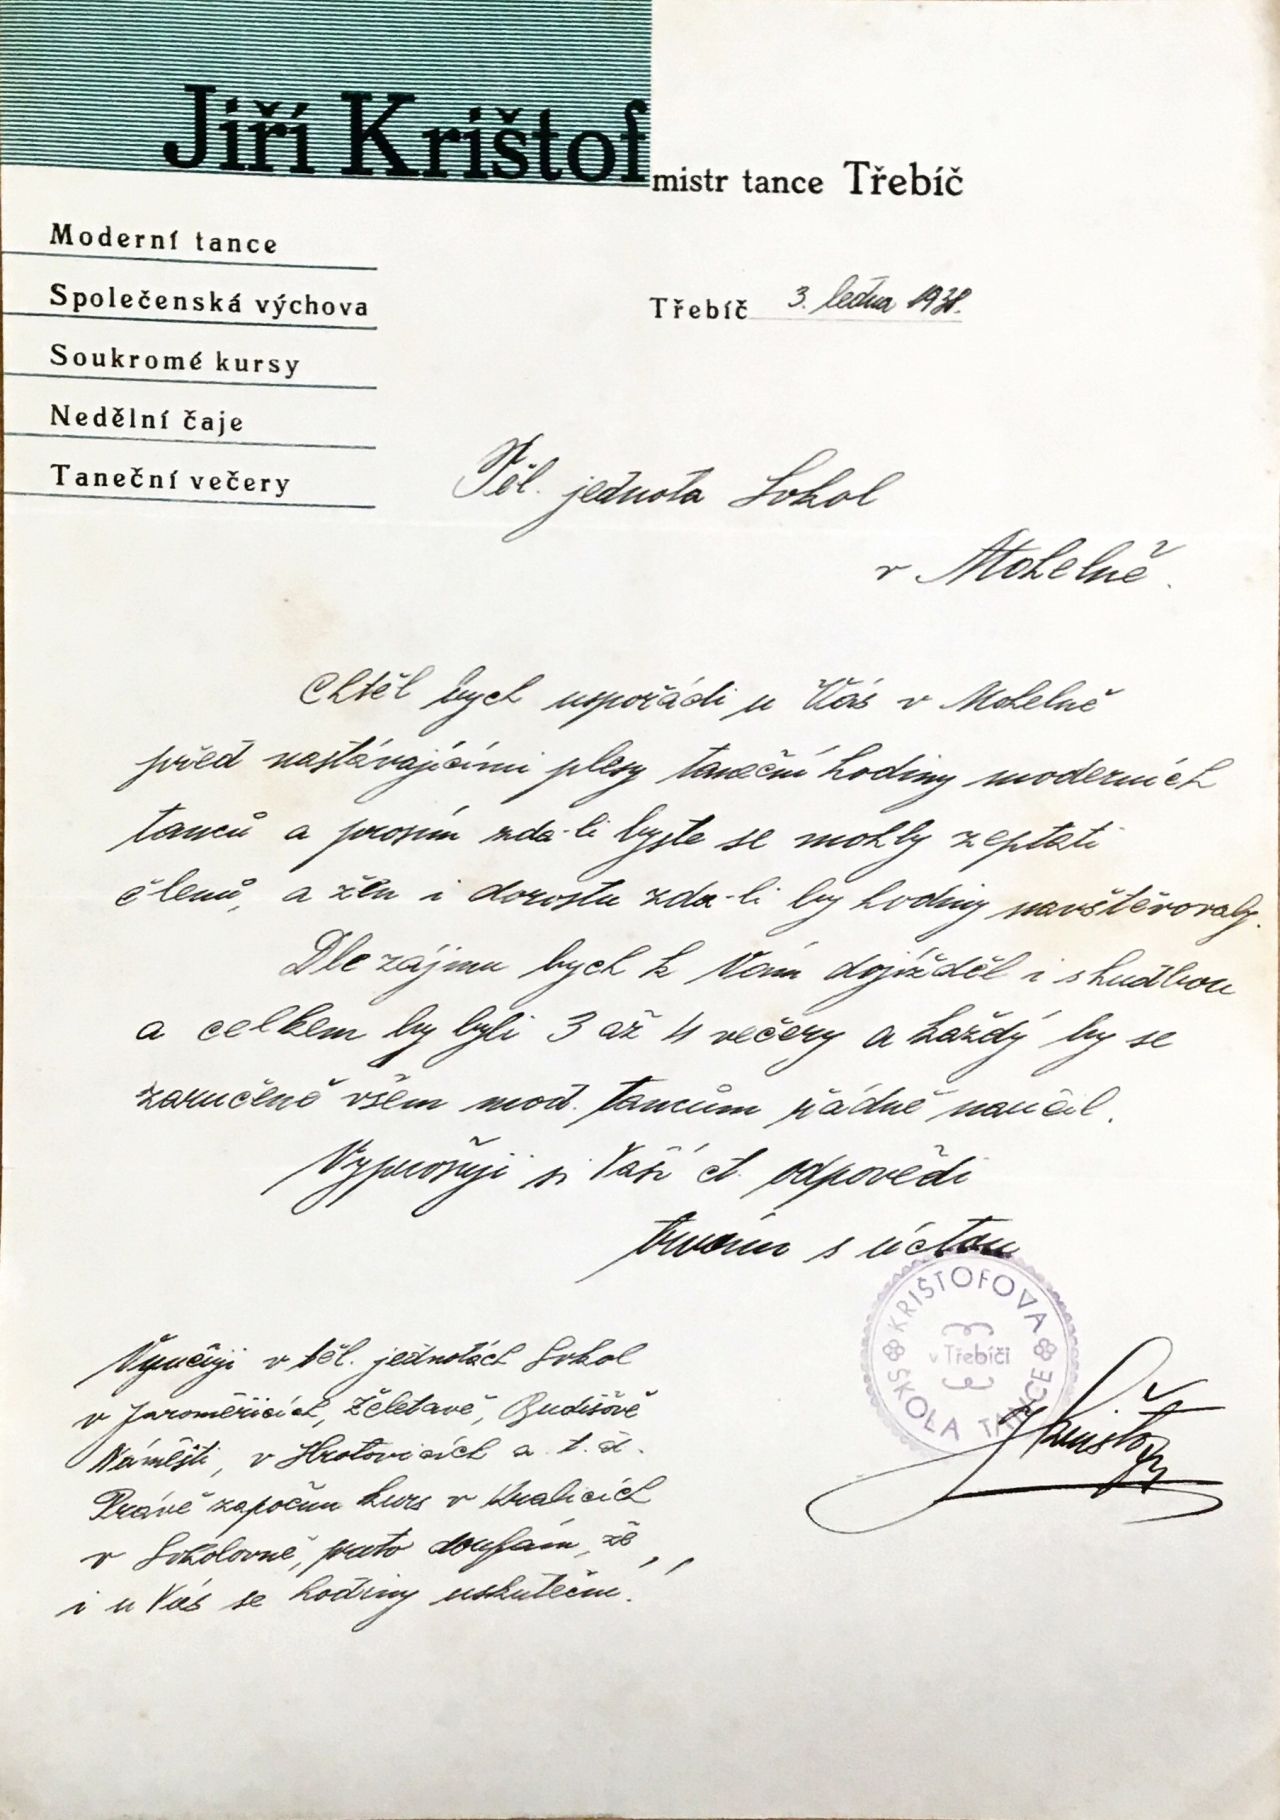 Jiří Krištof
mistr tance Třebíč
Moderní tance
Společenská výchova
Soukromé kursy
Nedělní čaje
Taneční večery
Třebíč 3. ledna 1938.
Těl. jednota Sokol
v Mohelně.
Chtěl bych uspořádi u Vás v Mohelně
před nastávajícími plesy taneční hodiny moderních
tanců a prosím zda-li byste se mohly zeptati
členů, a žen i dorostu zda-li by hodiny navštěvovaly.
Dle zájmu bych k Vám dojížděl i s hudbou
a celkem by byli 3 až 4 večery a každý by se
zaručeně všem mod. tancům řádně naučil.
Vyprošuji si Vaší ct. odpovědi
trvám s úctou
KRIŠTOFOVA
v Třebíči
ŠKOLA TANCE
JKrištof
Vyučuji v těl. jednotách Sokol
v Jaroměřicích, Želetavě, Budišově
Náměšti, v Hrotovicích a. t. d.
Právě započnu kurs v Kralicích
v Sokolovně, proto doufám, že
i u Vás se hodiny uskuteční.